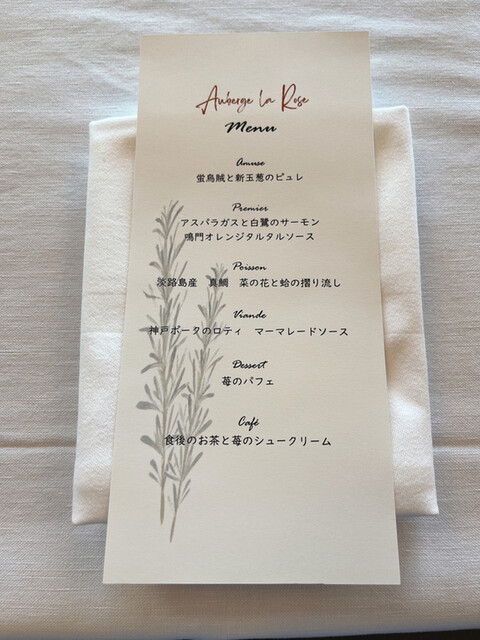 Auberge la Rose
Menu
Amuse
蛍烏賊と新玉葱のピュレ
Premier
アスパラガスと白鷺のサーモン
鳴門オレンジタルタルソース
Poisson
淡路島産　真鯛　菜の花と蛤の摺り流し
Viande
神戸ポークのロティ　マーマレードソース
Dessert
苺のパフェ
Café
食後のお茶と苺のシュークリーム